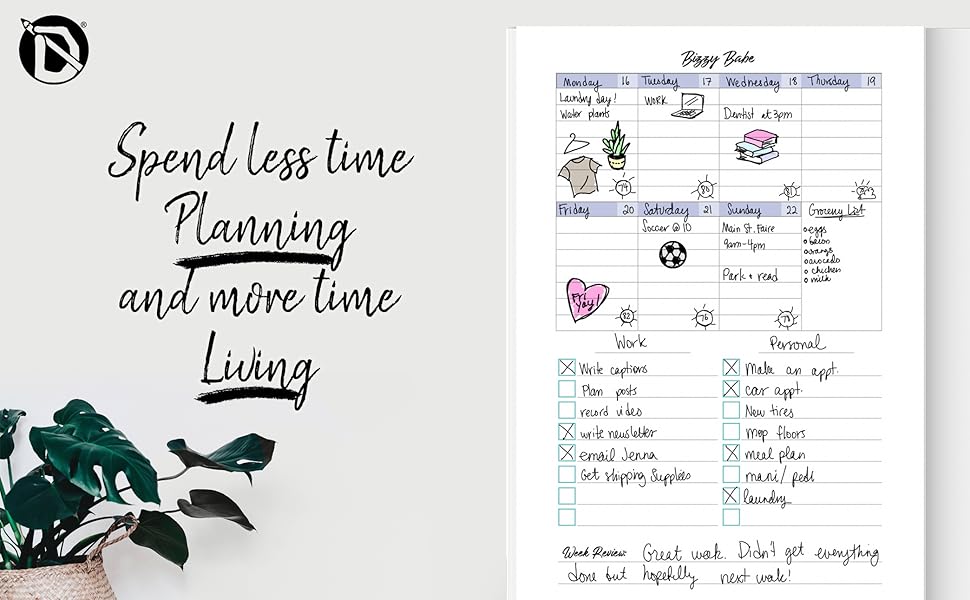 D
®
Spend less time
Planning
and more time
Living
Bizzy Babe
Monday 16 Tuesday 17 Wednesday 18 Thursday 19
Laundry day!
Water plants
Work
Dentist at 3pm
74
80
81
Friday 20 Saturday 21 Sunday 22
Fri Yay!
82
Soccer @ 10
76
Main St. Faire
9am-4pm
Park + read
78
Grocery List
eggs
bacon
avocado
chicken
milk
Work
Write captions
Plan posts
record video
write newsletter
email Jenna
Get shipping supplies
Personal
Make an appt.
car appt.
New tires
mop floors
meal plan
mani/pedi
laundry
Week Review: Great week. Didn't get everything
done but hopefully next week!